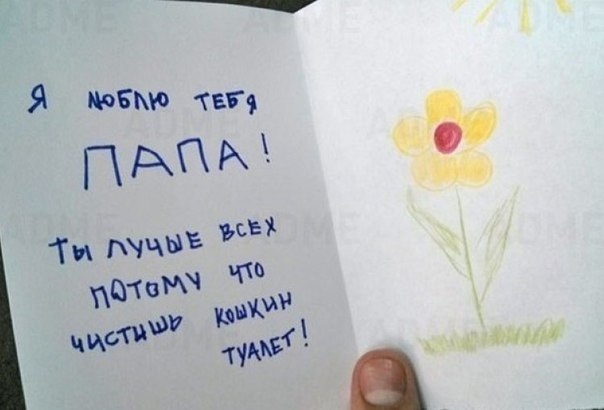 Я люблю тебя
ПАПА!
Ты лучые всех
потому что
чистишь кошкин
туалет!
ADME
ADME
ADME
ADME
ADME